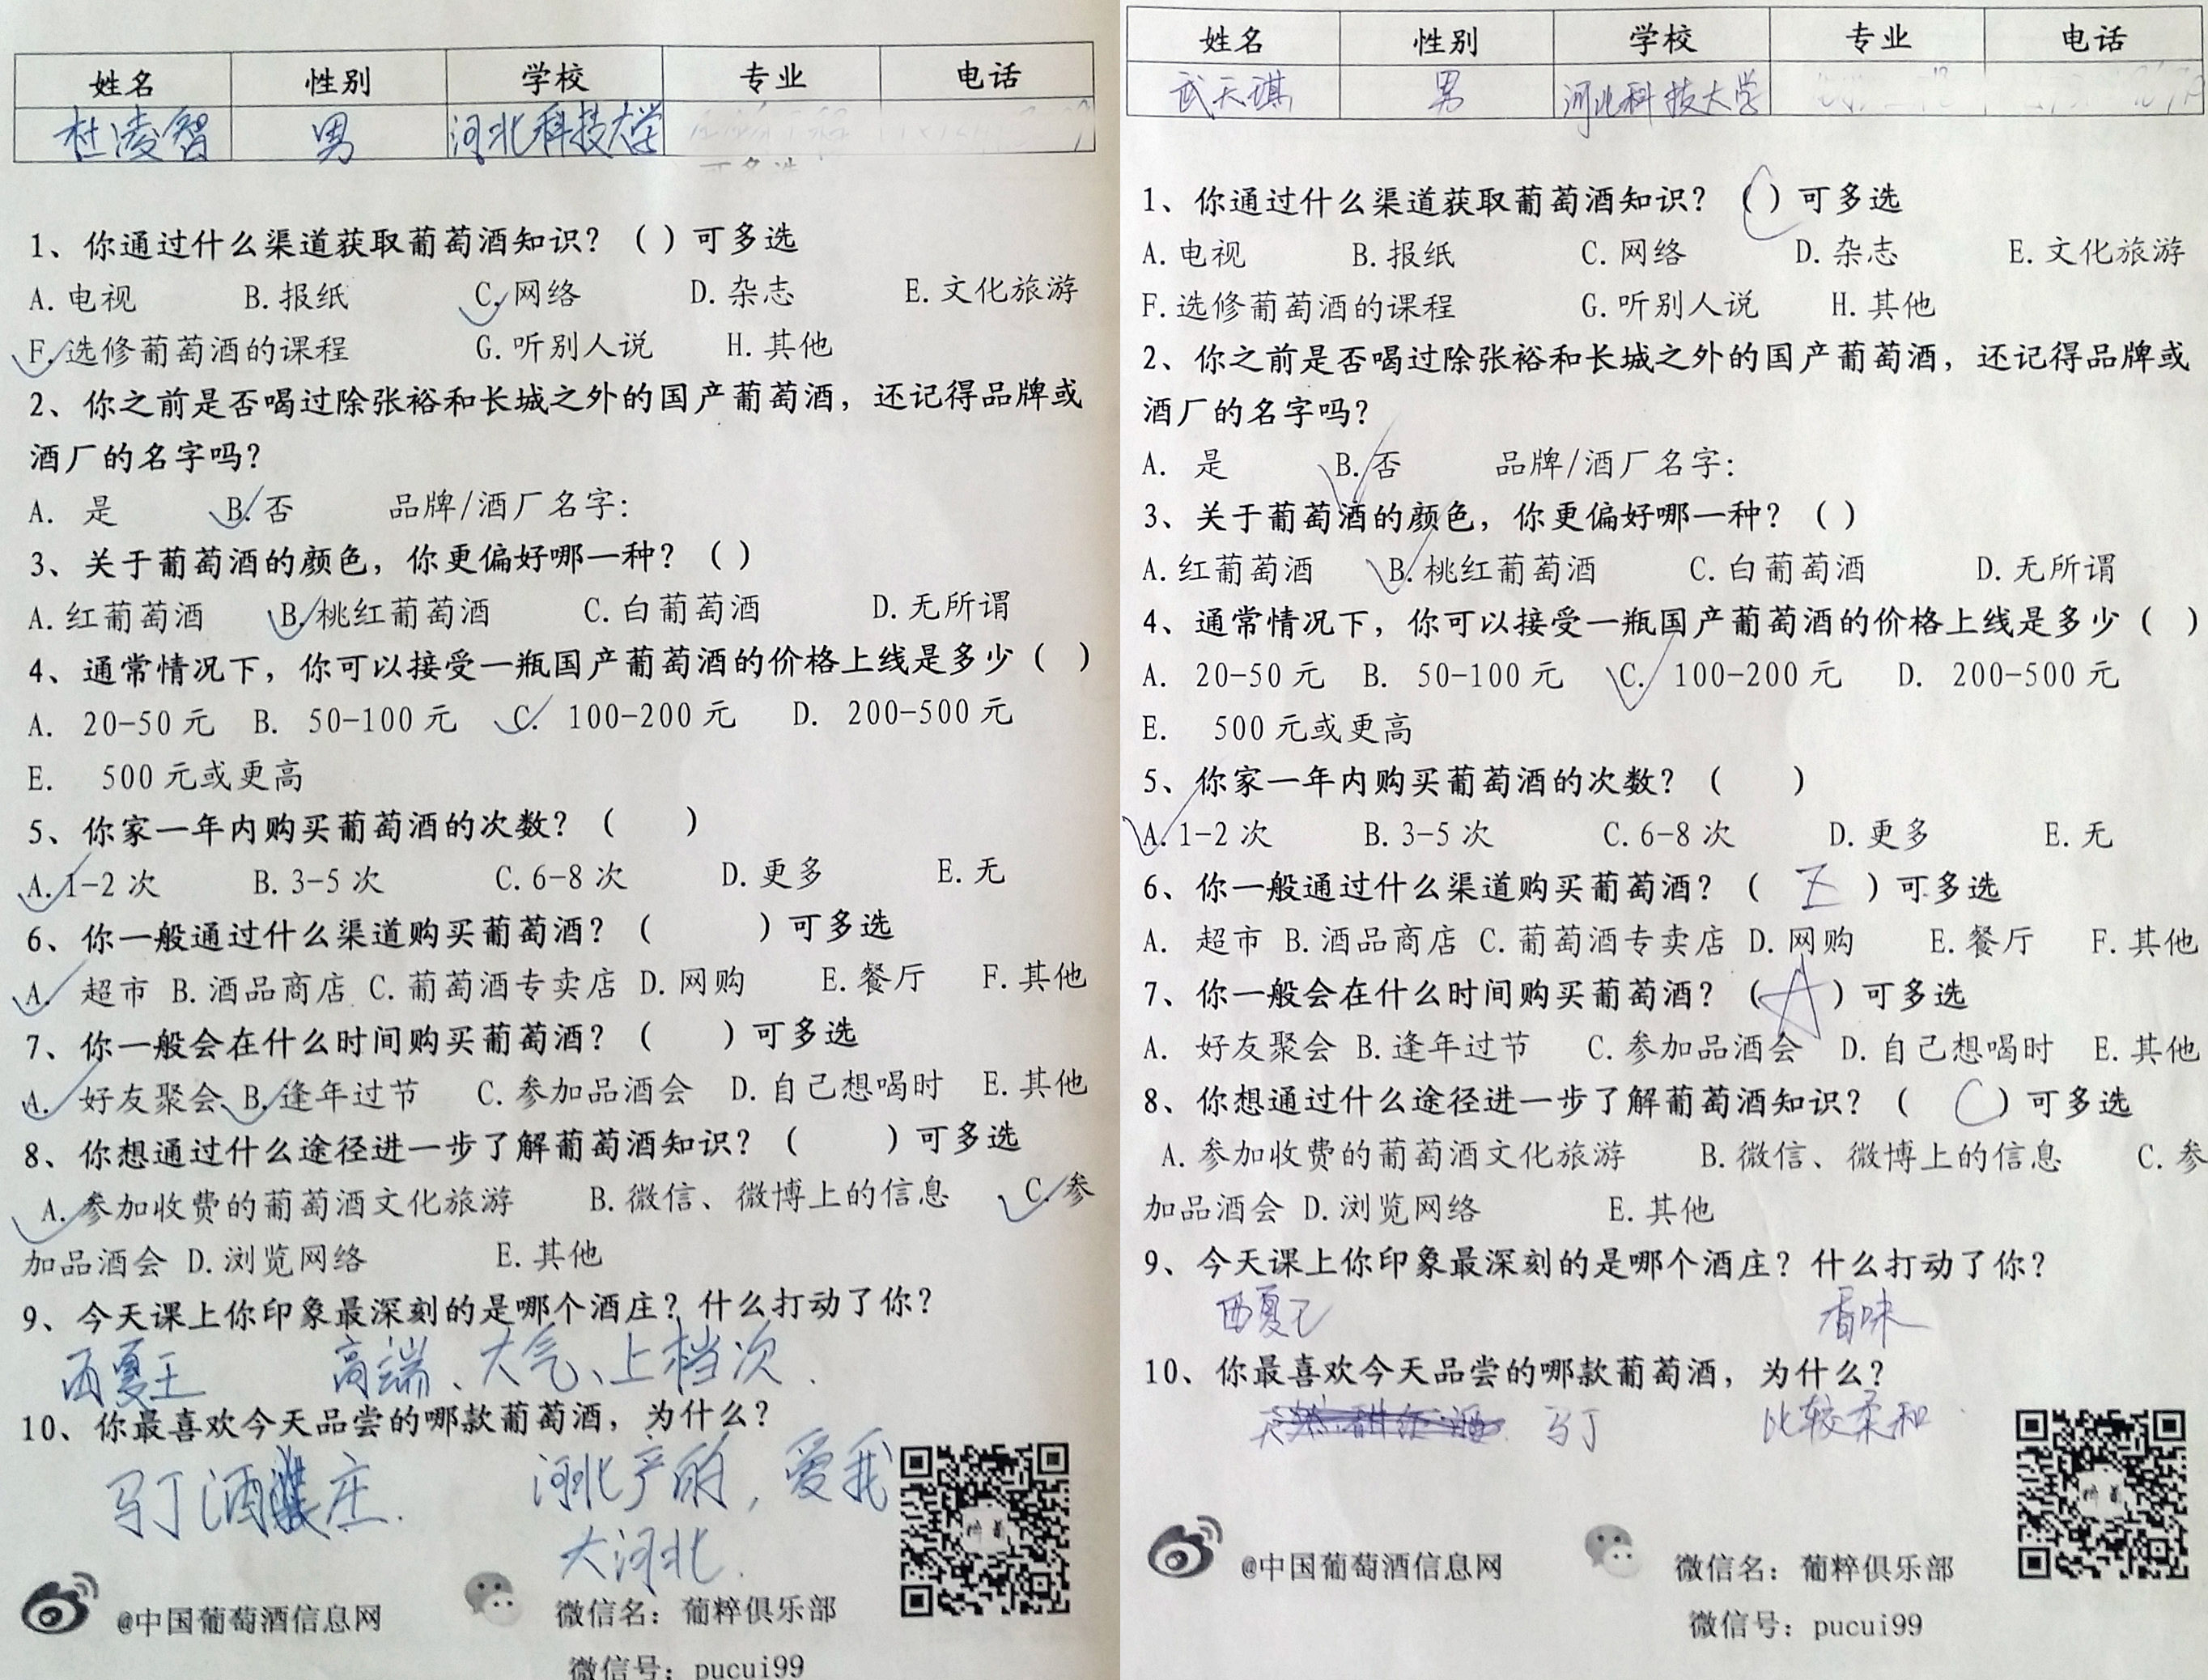 姓名 性别 学校 专业 电话
杜凌智 男 河北科技大学
1、你通过什么渠道获取葡萄酒知识？（ ）可多选
A.电视 B.报纸 C.网络 D.杂志 E.文化旅游
F.选修葡萄酒的课程 G.听别人说 H.其他
2、你之前是否喝过除张裕和长城之外的国产葡萄酒，还记得品牌或
酒厂的名字吗？
A. 是 B.否 品牌/酒厂名字：
3、关于葡萄酒的颜色，你更偏好哪一种？（ ）
A.红葡萄酒 B.桃红葡萄酒 C.白葡萄酒 D.无所谓
4、通常情况下，你可以接受一瓶国产葡萄酒的价格上线是多少（ ）
A. 20-50元 B. 50-100元 C. 100-200元 D. 200-500元
E. 500元或更高
5、你家一年内购买葡萄酒的次数？（ ）
A.1-2次 B.3-5次 C.6-8次 D.更多 E.无
6、你一般通过什么渠道购买葡萄酒？（ ）可多选
A. 超市 B.酒品商店 C.葡萄酒专卖店 D.网购 E.餐厅 F.其他
7、你一般会在什么时间购买葡萄酒？（ ）可多选
A. 好友聚会 B.逢年过节 C.参加品酒会 D.自己想喝时 E.其他
8、你想通过什么途径进一步了解葡萄酒知识？（ ）可多选
A.参加收费的葡萄酒文化旅游 B.微信、微博上的信息 C.参
加品酒会 D.浏览网络 E.其他
9、今天课上你印象最深刻的是哪个酒庄？什么打动了你？
西夏王 高端、大气、上档次.
10、你最喜欢今天品尝的哪款葡萄酒，为什么？
马丁酒庄. 河北产的，爱我
大河北.
@中国葡萄酒信息网 微信名：葡粹俱乐部
微信号：pucui99
姓名 性别 学校 专业 电话
武天琪 男 河北科技大学
1、你通过什么渠道获取葡萄酒知识？（C）可多选
A.电视 B.报纸 C.网络 D.杂志 E.文化旅游
F.选修葡萄酒的课程 G.听别人说 H.其他
2、你之前是否喝过除张裕和长城之外的国产葡萄酒，还记得品牌或
酒厂的名字吗？
A. 是 B.否 品牌/酒厂名字：
3、关于葡萄酒的颜色，你更偏好哪一种？（ ）
A.红葡萄酒 B.桃红葡萄酒 C.白葡萄酒 D.无所谓
4、通常情况下，你可以接受一瓶国产葡萄酒的价格上线是多少（ ）
A. 20-50元 B. 50-100元 C. 100-200元 D. 200-500元
E. 500元或更高
5、你家一年内购买葡萄酒的次数？（ ）
A.1-2次 B.3-5次 C.6-8次 D.更多 E.无
6、你一般通过什么渠道购买葡萄酒？（ E ）可多选
A. 超市 B.酒品商店 C.葡萄酒专卖店 D.网购 E.餐厅 F.其他
7、你一般会在什么时间购买葡萄酒？（ A ）可多选
A. 好友聚会 B.逢年过节 C.参加品酒会 D.自己想喝时 E.其他
8、你想通过什么途径进一步了解葡萄酒知识？（ C ）可多选
A.参加收费的葡萄酒文化旅游 B.微信、微博上的信息 C.参
加品酒会 D.浏览网络 E.其他
9、今天课上你印象最深刻的是哪个酒庄？什么打动了你？
西夏王 香味
10、你最喜欢今天品尝的哪款葡萄酒，为什么？
马丁 比较柔和
@中国葡萄酒信息网 微信名：葡粹俱乐部
微信号：pucui99